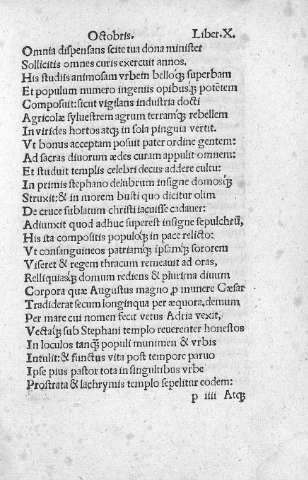 Octobris. Liber.X.
Omnia dispensans scite tua dona minister
Sollicitis omnes curis exercuit annos,
His studiis animosam vrbem belloqꝫ superbam
Et populum numero ingenẽs opibusqꝫ potẽtem
Composuit: sicut vigilans industria docti
Agricolæ syluestrem agrum terramqꝫ rebellem
In virides hortos atqꝫ in sola pinguia vertit.
Vt bonus acceptam posuit pater ordine gentem:
Ad sacras diuorum ædes curam appulit omnem:
Et studuit templis celebri decus addere cultu:
In primis stephano delubrum insigne domosqꝫ
Struxit: & in morem busti quo dicitur olim
De cruce sublatum christi iacuisse cadauer:
Adiunxit quod adhuc superest insigne sepulchrũ,
His ita compositis populoqꝫ in pace relicto:
Vt consanguineos patriamqꝫ ipsamqꝫ sororem
Viseret & regem thracum remeauit ad oras,
Relliquiasqꝫ domum rediens & plurima diuum
Corpora quæ Augustus magno ꝓ munere Cæsar
Tradiderat secum longinqua per æquora, demum
Per mare cui nomen fecit vetus Adria vexit,
Vectaqꝫ sub Stephani templo reuerenter honestos
In loculos tanqꝫ populi munimen & vrbis
Intulit: & functus vita post tempore paruo
Ipse pius pastor tota in singultibus vrbe
Prostrata & lachrymis templo sepelitur eodem:
p iiii Atqꝫ